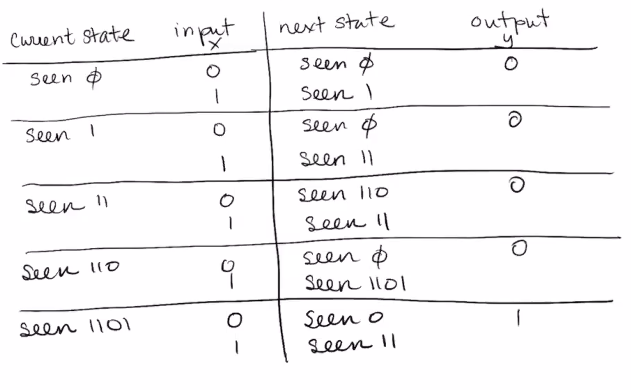 current state input x next state output y
seen ϕ 0 seen ϕ 0
1 seen 1
seen 1 0 seen ϕ 0
1 seen 11
seen 11 0 seen 110 0
1 seen 11
seen 110 0 seen ϕ 0
1 seen 1101
seen 1101 0 seen 0 1
1 seen 11